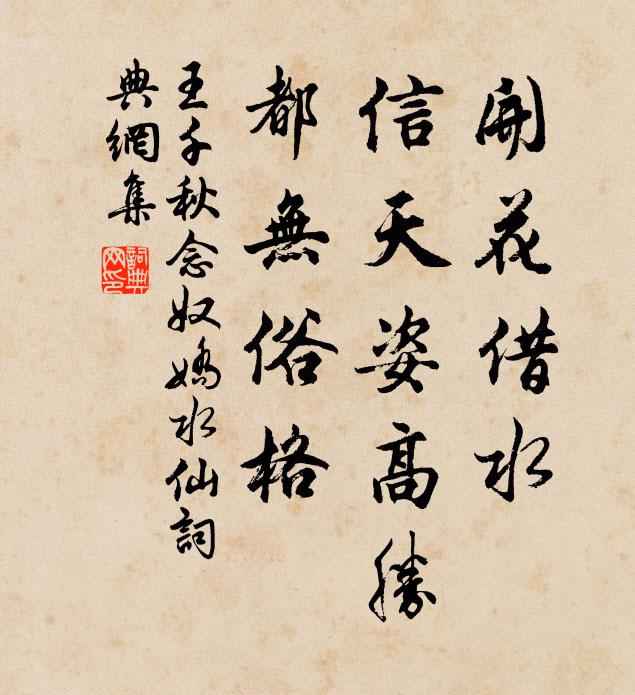 開花借水
信天姿高勝
都無俗格
王千秋念奴嬌水仙詞
典網集
詞典網印